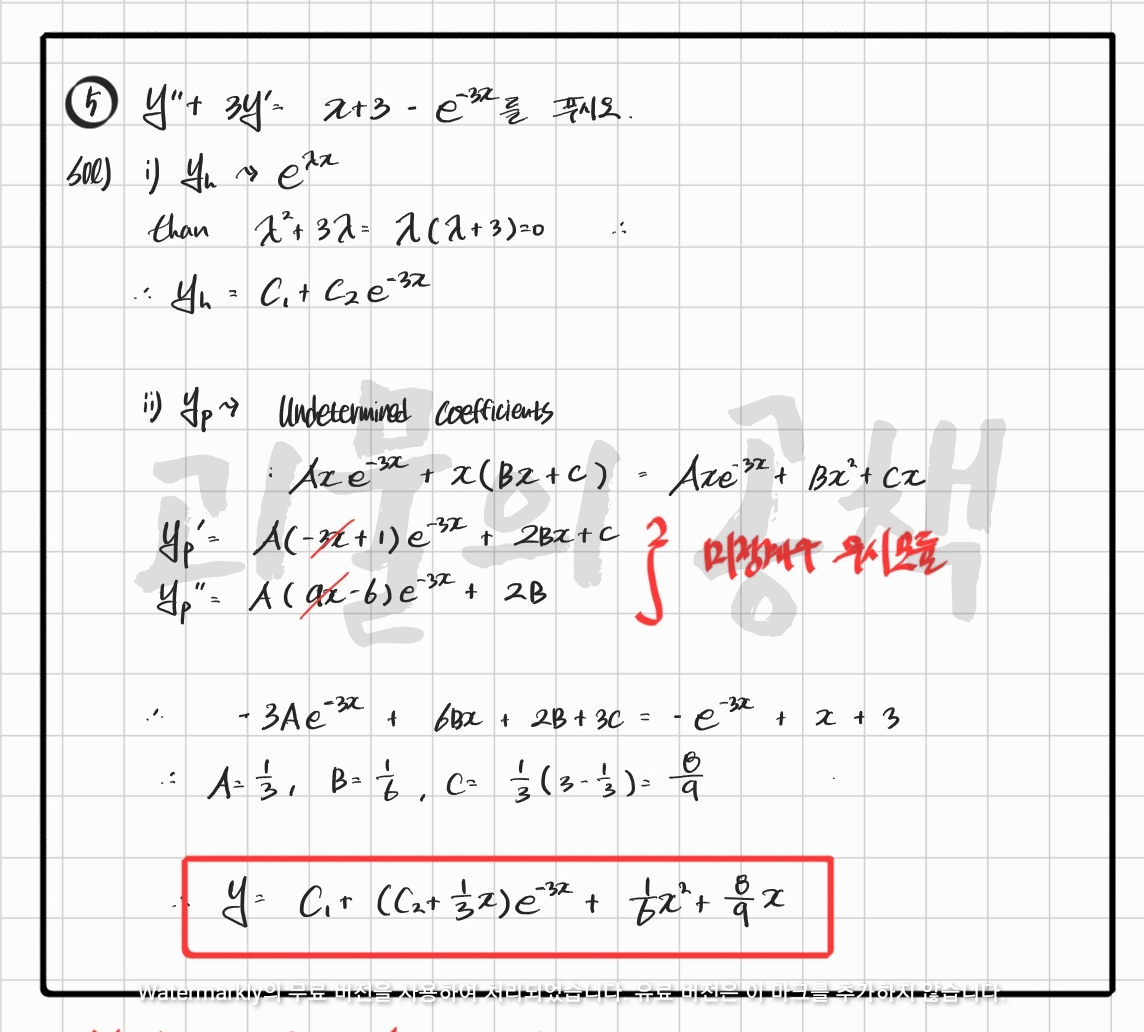 ⑤ y''+ 3y'= x+3 - e^{-3x}를 푸시오.
sol) i) y_h ⇝ e^{λx}
than λ²+ 3λ= λ(λ+3)=0 ∴
∴ y_h = C₁+ C₂e^{-3x}
ii) y_p ⇝ Undetermined Coefficients
: Axe^{-3x} + x(Bx+C) = Axe^{-3x}+ Bx²+ Cx
y_p'= A(-3x+1)e^{-3x} + 2Bx+C
y_p''= A(9x-6)e^{-3x} + 2B
미정계수 무시모듈
∴ -3Ae^{-3x} + 6Bx + 2B+3C = -e^{-3x} + x + 3
∴ A=1/3, B=1/6, C= 1/3(3-1/3)= 8/9
∴ y= C₁+ (C₂+1/3x)e^{-3x} + 1/6x²+ 8/9x
괴물의 공책
Watermarkly의 무료 버전을 사용하여 처리되었습니다. 유료 버전은 이 마크를 추가하지 않습니다.